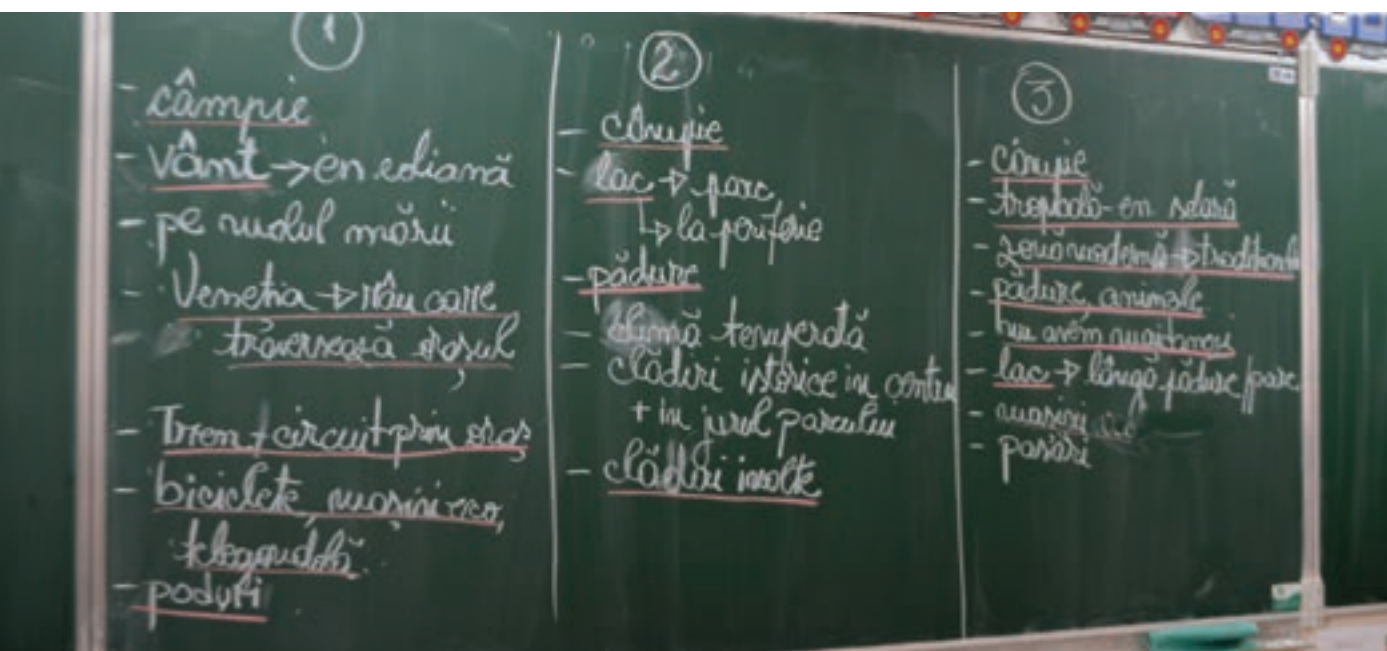 1
- câmpie
- vânt → en. eoliană
- pe malul mării
- Veneția → râu care
traversează orașul
- Tren + circuit prin oraș
- biciclete, mașini eco,
telegondolă
- poduri
2
- câmpie
- lac → parc
↳ la periferie
- pădure
- climă temperată
- clădiri istorice in centru
+ in jurul parcului
- clădiri inalte
3
- câmpie
- tropicală - en solară
- zonă modernă → tradițională
- pădure, animale
- nu avem
- lac → lângă pădure/parc
- mașini
- pasări